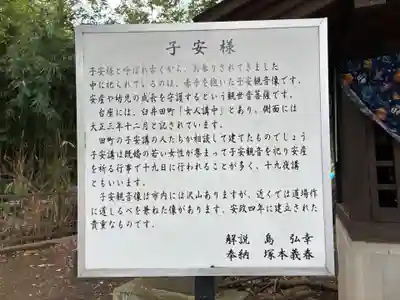 子安様
子安様と呼ばれ古くから、お参りされてきました
中に祀られているのは、赤子を抱いた子安観音像です。
安産や幼児の成長を守護するという観世音菩薩です。
台座には、臼井田町「女人講中」とあり、側面には
大正三年十二月と記されています。
田町の子安講の人たちが相談して建てたものでしょう
子安講は既婚の若い女性が集まって子安観音を祀り安産
を祈る行事で十九日に行われることが多く、十九夜講
ともいいます。
子安観音像は市内には沢山ありますが、近くでは道場作
に道しるべを兼ねた像があります。安政四年に建立された
貴重なものです。
解説 島 弘幸
奉納 塚本義春